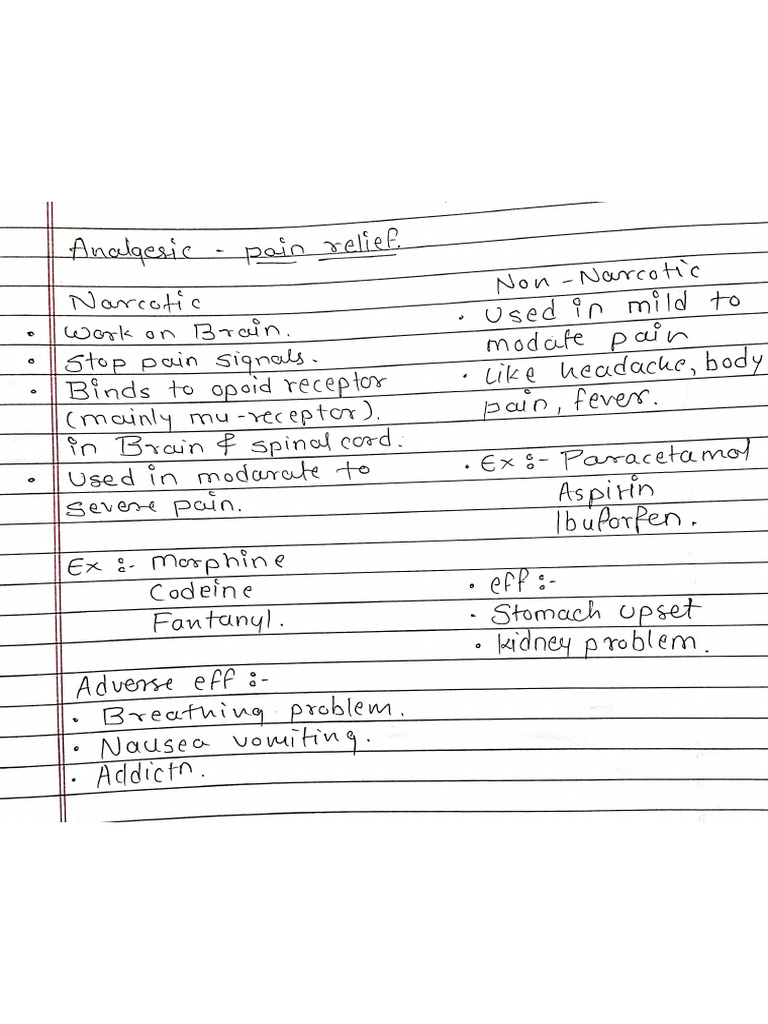 Analgesic - pain relief.
Narcotic
• Work on Brain.
• Stop pain signals.
• Binds to opoid receptor
(mainly mu-receptor).
in Brain & spinal cord.
• Used in modarate to
severe pain.
Ex :- Morphine
Codeine
Fantanyl.
Adverse eff :-
• Breathing problem.
• Nausea vomiting.
• Addictn.
Non-Narcotic
• Used in mild to
modate pain
• Like headache, body
pain, fever.
• Ex :- Paracetamol
Aspirin
Ibuforfen.
• eff :-
• Stomach upset
• kidney problem.